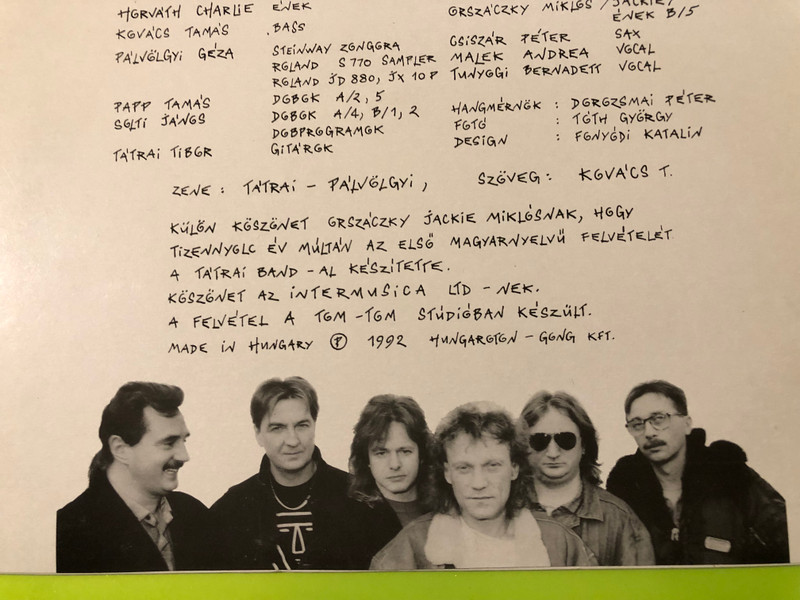 HORVÁTH CHARLIE ÉNEK
KOVÁCS TAMÁS BASS
PÁLVÖLGYI GÉZA STEINWAY ZONGORA
ROLAND S 770 SAMPLER
ROLAND JD 880, JX 10 P
PAPP TAMÁS DOBOK A/2, 5
SOLTI JÁNOS DOBOK A/4, B/1, 2
DOBPROGRAMOK
TÁTRAI TIBOR GITÁROK
ORSZÁCZKY MIKLÓS /JACKIE/
ÉNEK B/5
CSISZÁR PÉTER SAX
MALEK ANDREA VOCAL
TUNYOGI BERNADETT VOCAL
HANGMÉRNÖK : DOROZSMAI PÉTER
FOTÓ : TÓTH GYÖRGY
DESIGN : FONYÓDI KATALIN
ZENE : TÁTRAI - PÁLVÖLGYI, SZÖVEG : KOVÁCS T.
KÜLÖN KÖSZÖNET ORSZÁCZKY JACKIE MIKLÓSNAK, HOGY
TIZENNYOLC ÉV MÚLTÁN AZ ELSŐ MAGYARNYELVŰ FELVÉTELÉT
A TÁTRAI BAND -AL KÉSZÍTETTE.
KÖSZÖNET AZ INTERMUSICA LTD - NEK.
A FELVÉTEL A TOM -TOM STÚDIÓBAN KÉSZÜLT.
MADE IN HUNGARY Ⓟ 1992 HUNGAROTON - GONG KFT.